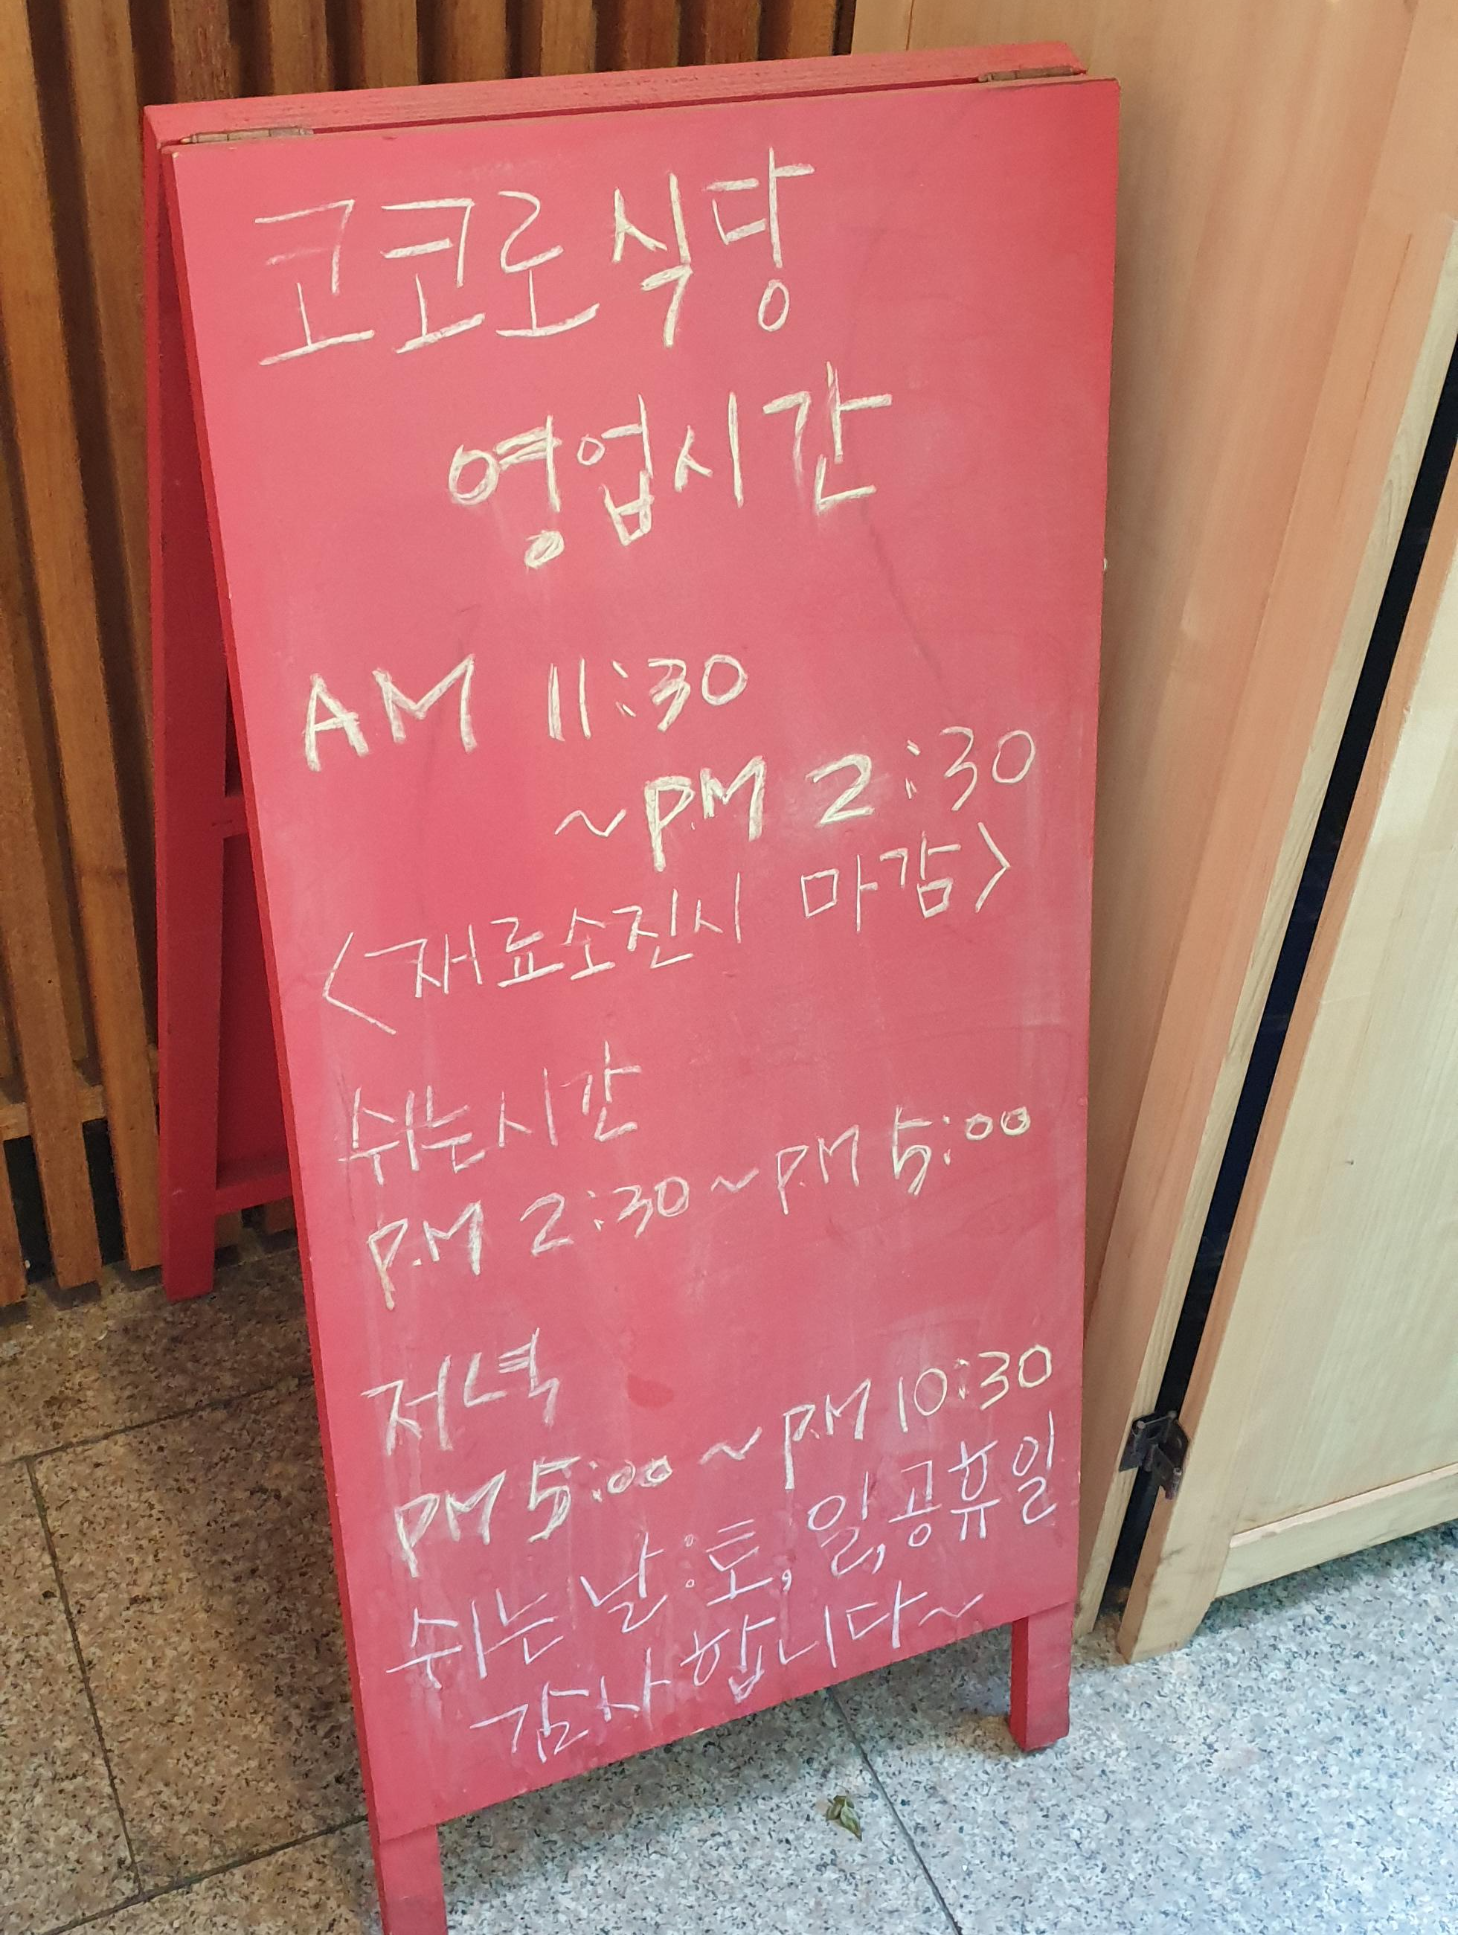 코코로식당
영업시간
AM 11:30
~P.M 2:30
<재료소진시 마감>
쉬는시간
P.M 2:30~P.M 5:00
저녁
PM 5:00~P.M 10:30
쉬는날:토,일,공휴일
감사합니다~